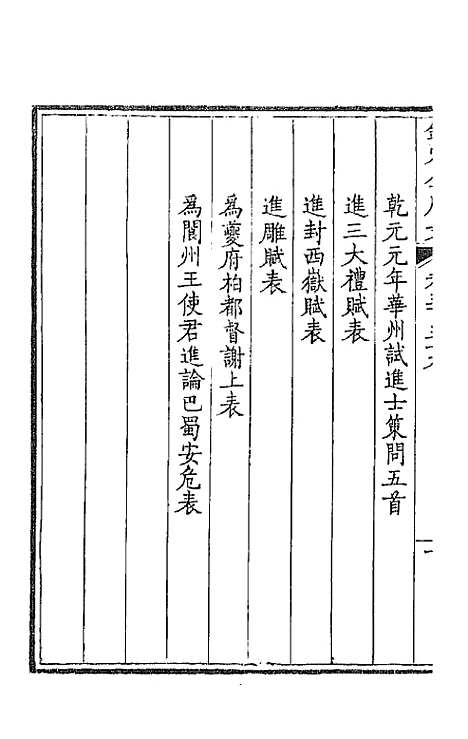 乾元元年華州試進士策問五首
進三大禮賦表
進封西嶽賦表
進雕賦表
為夔府柏都督謝上表
為閬州王使君進論巴蜀安危表